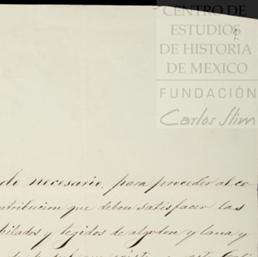 CENTRO DE
ESTUDIOS
DE HISTORIA
DE MEXICO
FUNDACIÓN
Carlos Slim
do necesario, para proceder al co
ntribucion que deben satisfacer las
hilados y tegidos de algodon y lana y